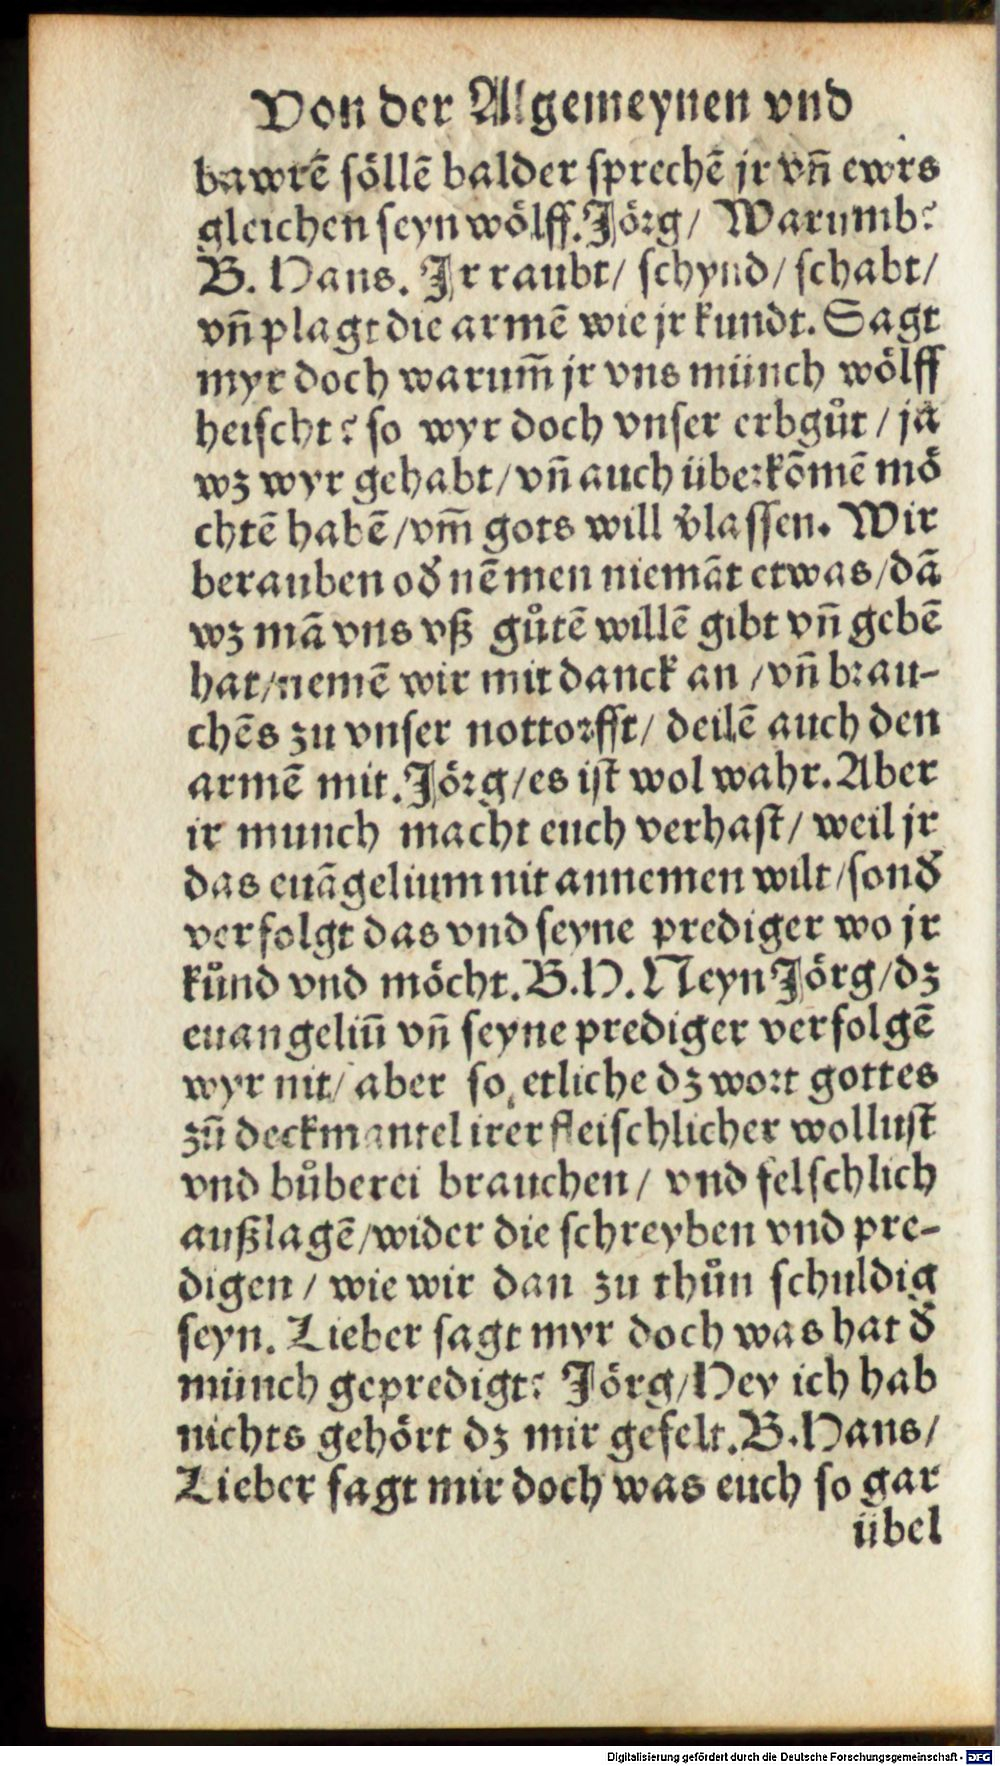 Von der Algemeynen vnd
bawrẽ söllẽ balder sprechẽ jr vñ ewrs
gleichen seyn wölff. Jörg/ Warumb?
B. Hans. Jr raubt/ schynd/ schabt/
vñ plagt die armẽ wie jr kundt. Sagt
myr doch warum̃ jr vns münch wölff
heischt? so wyr doch vnser erbgůt / ja
wz wyr gehabt/ vñ auch überkõmẽ mö
chtẽ habẽ /vm̃ gots will v̈lassen. Wir
berauben od̕ nẽmen niemãt etwas/dã
wz mã vns vß gůtẽ willẽ gibt vñ gebẽ
hat/nemẽ wir mit danck an /vñ brau-
chẽs zu vnser nottorfft/ deilẽ auch den
armẽ mit. Jörg/es ist wol wahr. Aber
ir munch macht euch verhast/ weil jr
das euãgelium nit annemen wilt/sond̕
verfolgt das vnd seyne prediger wo jr
kůnd vnd möcht. B.H. Neyn Jörg/dz
euangeliũ vñ seyne prediger verfolgẽ
wyr nit/ aber so etliche dz wort gottes
zũ deckmantel irer fleischlicher wollust
vnd bůberei brauchen/ vnd felschlich
außlagẽ/wider die schreyben vnd pre-
digen / wie wir dan zu thůn schuldig
seyn. Lieber sagt myr doch was hat d̕
münch gepredigt? Jörg/Hey ich hab
nichts gehört dz mir gefelt. B. Hans/
Lieber sagt mir doch was euch so gar
übel
Digitalisierung gefördert durch die Deutsche Forschungsgemeinschaft - DFG